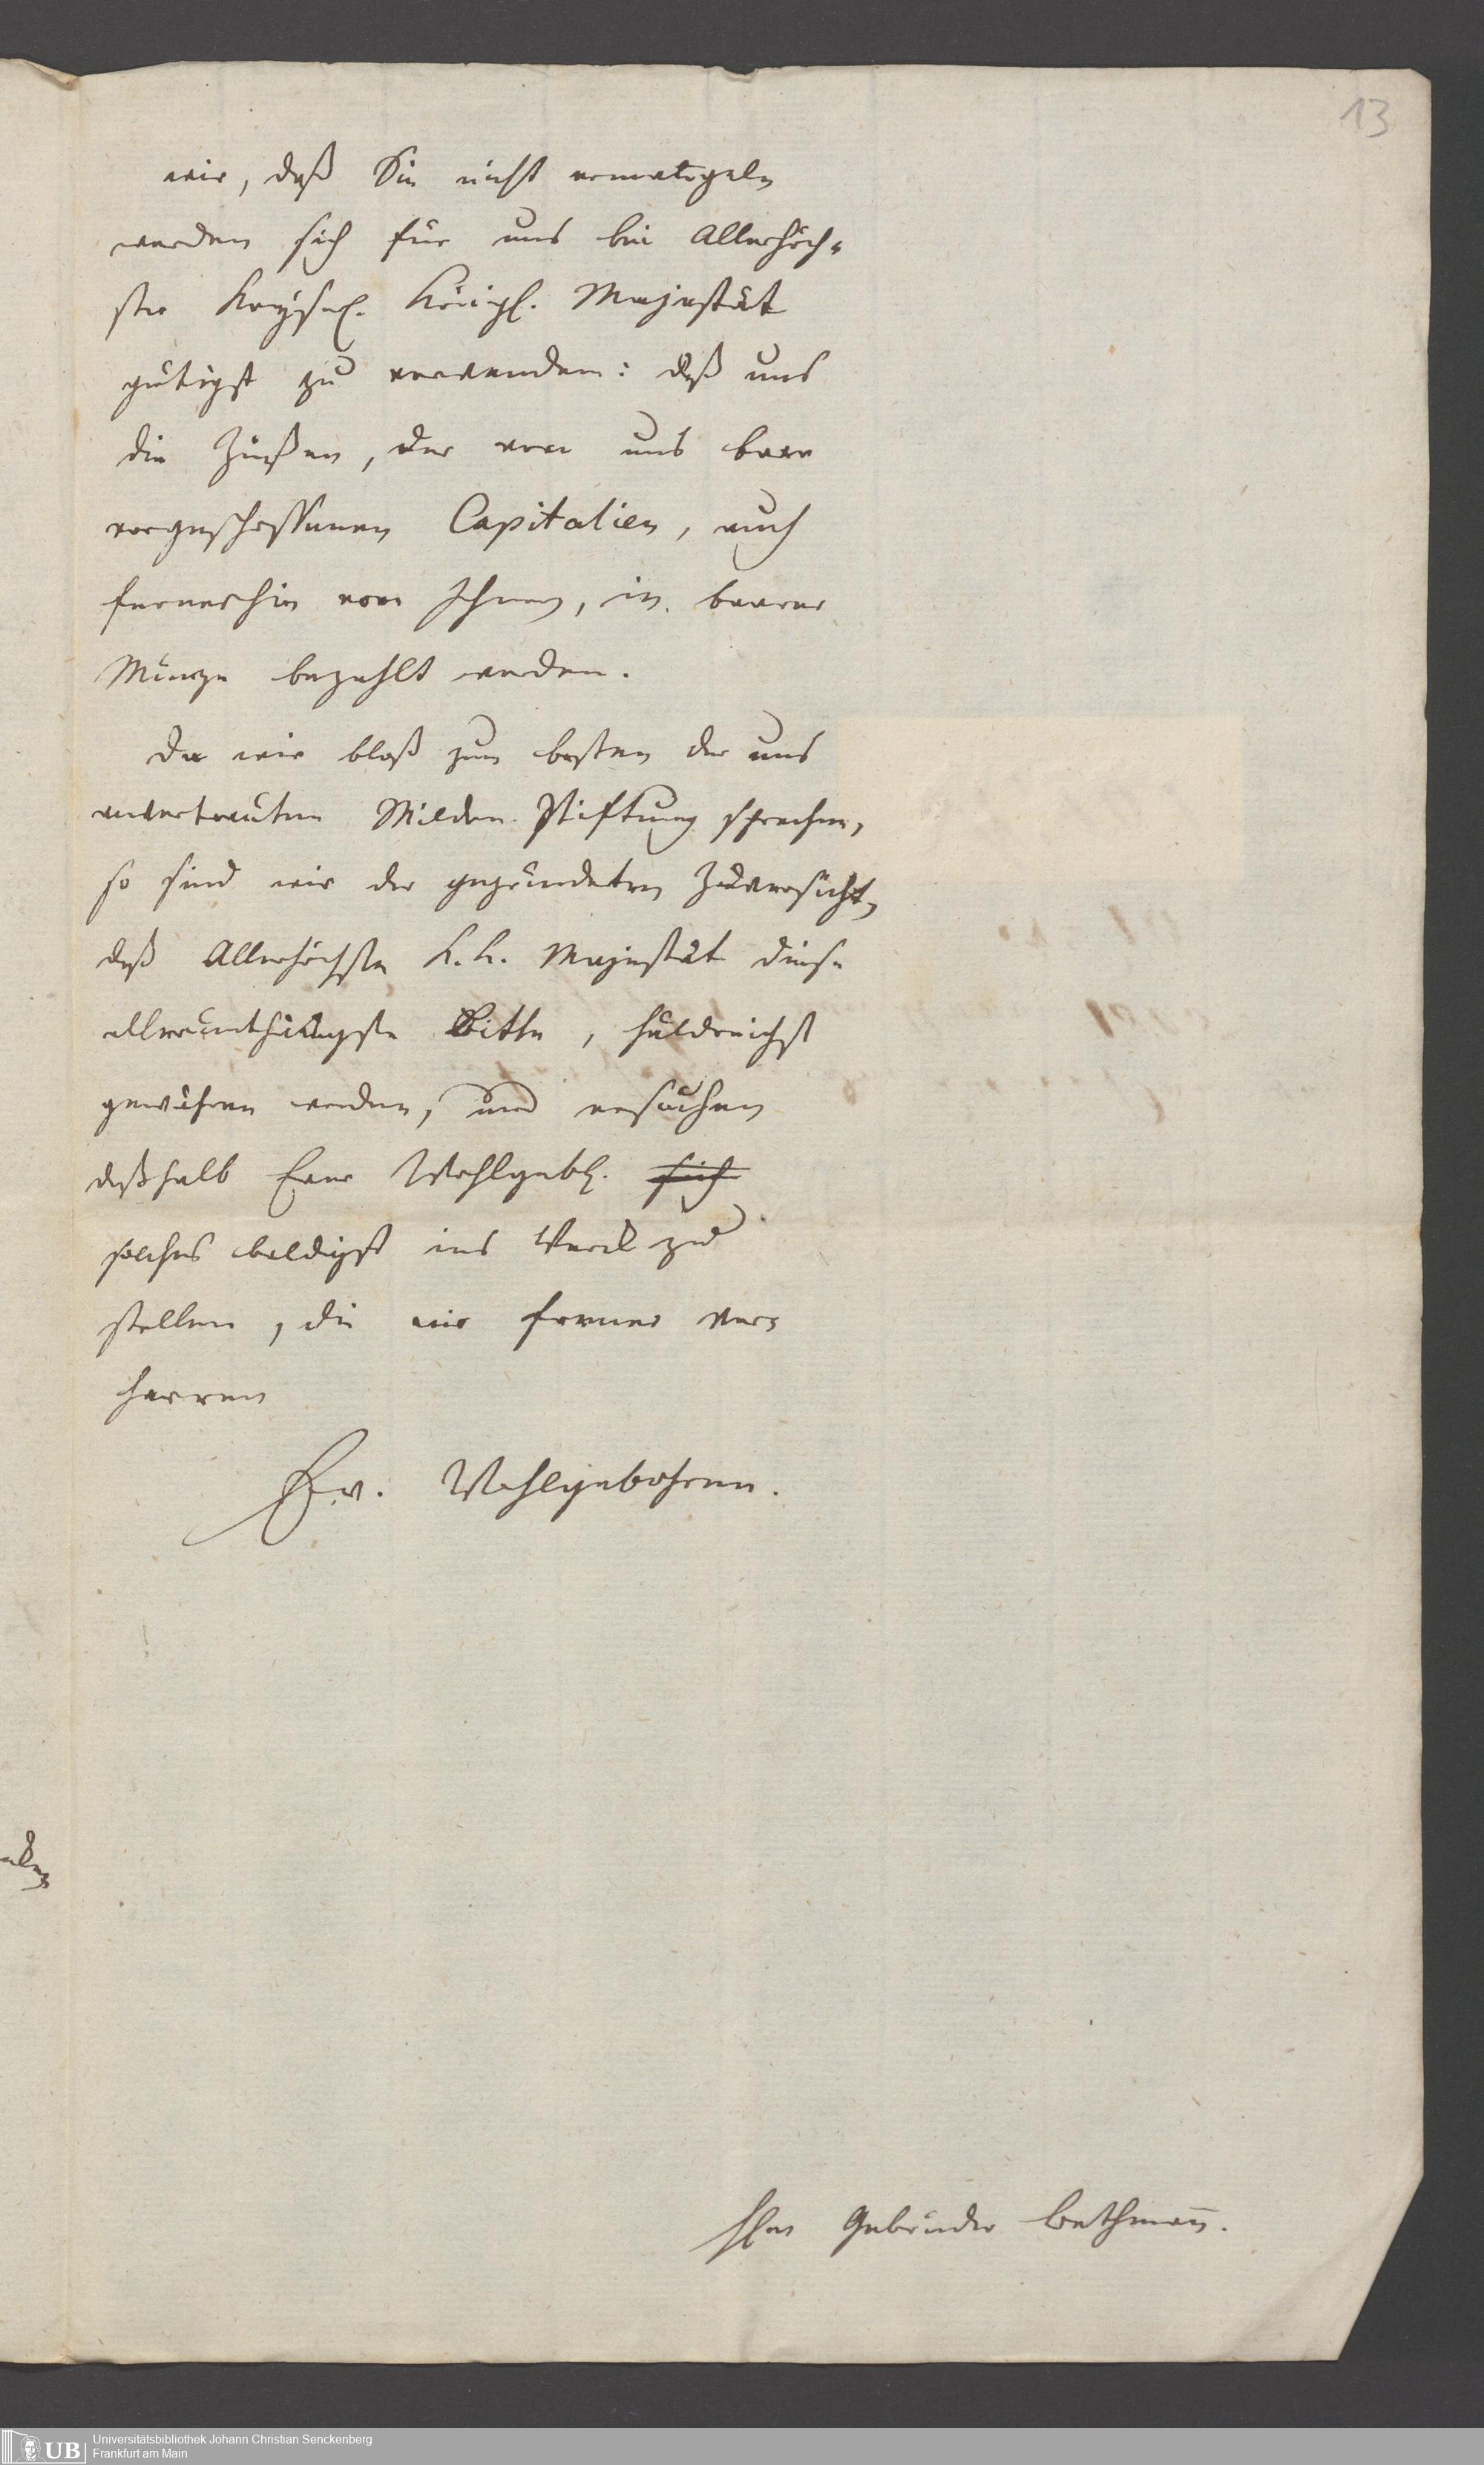 13
wir, daß Sie nicht ermanglen
werden sich für uns bei Allerhöch-
ster Kaÿserl. Königl. Majestät
gütigst zu verwenden: daß uns
die Zinßen, der von uns baar
vorgeschossenen Capitalien, auch
fernerhin von Ihnen, in baarer
Münze bezahlt werden.
Da wir bloß zum besten der uns
anvertrauten Milden Stiftung sprechen,
so sind wir der gegründeten Zuversicht,
daß Allerhöchste K. K. Majestät diese
allerunthänigste Bitte, huldreichst
gewähren werden, und ersuchen
deßhalb Euer Wohlgeb. sich
solches baldigst ins Werck zu
stellen, die wir ferner ver-
harren
Ew. Wohlgebohren.
Hen Gebrüder Bethmann.
UB
Universitätsbibliothek Johann Christian Senckenberg
Frankfurt am Main